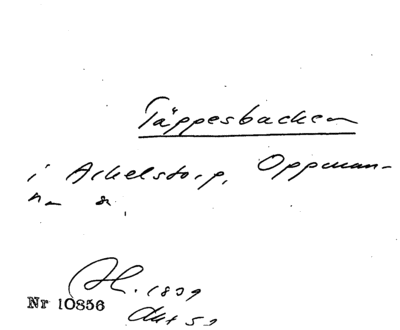 Täppesbacken
i Arkelstorp, Oppman-
na sn.
1839
Nr 10856
Akt 53